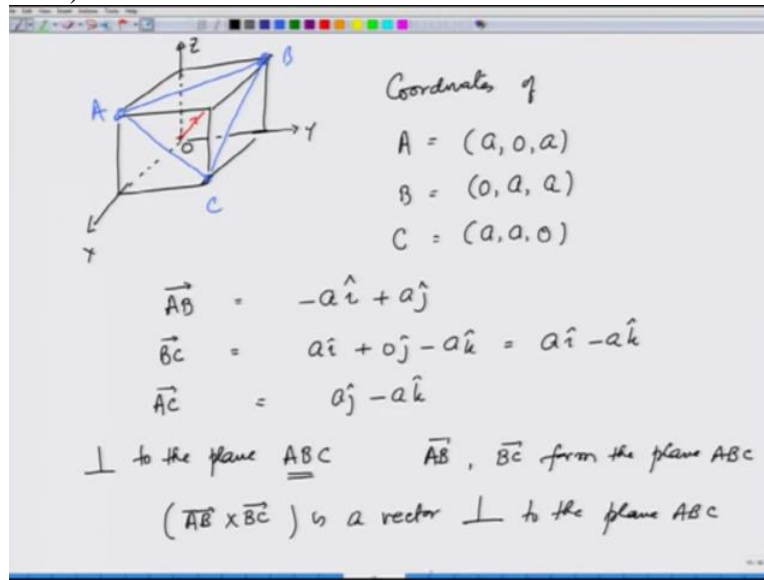 Z
B
A
O
Y
C
X
Coordinates of
A = (a, 0, a)
B = (0, a, a)
C = (a, a, 0)
\overrightarrow{AB} = -a\hat{i} + a\hat{j}
\overrightarrow{BC} = a\hat{i} + 0\hat{j} - a\hat{k} = a\hat{i} - a\hat{k}
\overrightarrow{AC} = a\hat{j} - a\hat{k}
⊥ to the plane ABC \overrightarrow{AB}, \overrightarrow{BC} form the plane ABC
(\overrightarrow{AB} × \overrightarrow{BC}) is a vector ⊥ to the plane ABC